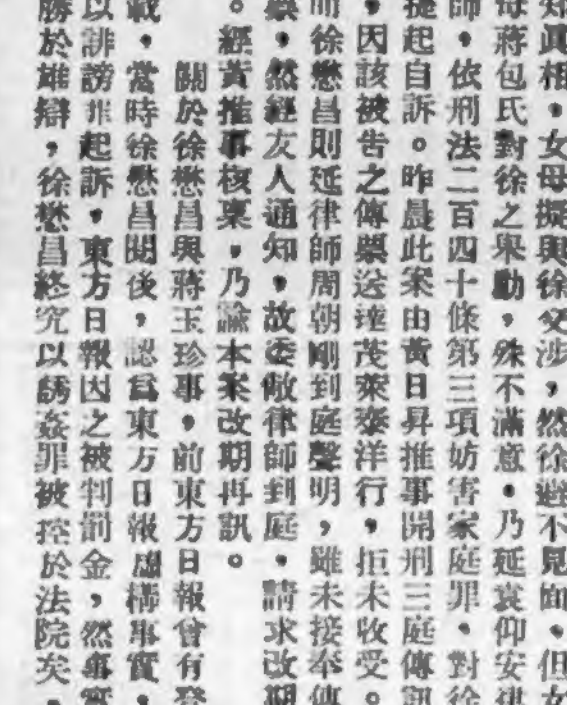 知眞相。女母擬與徐交涉，然徐避不見面。但女
母蔣包氏對徐之舉動，殊不滿意。乃延袁仰安律
師，依刑法二百四十條第三項妨害家庭罪。對徐
提起自訴。昨晨此案由黃日昇推事開刑三庭傳訊
，因該被告之傳票送達茂泰洋行，拒未收受。
而徐懋昌則延律師周朝剛到庭聲明，雖未接奉傳
票，然經友人通知，故委敝律師到庭。請求改期
。經黃推事核禀，乃諭本案改期再訊。
關於徐懋昌與蔣玉珍事，前東方日報曾有登
載，當時徐懋昌閱後，認爲東方日報虛構事實，
以誹謗罪起訴，東方日報因之被判罰金，然事實
勝於雄辯，徐懋昌終究以誘姦罪被控於法院矣。